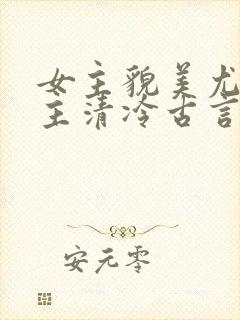 女主貌美尤
主清冷古言
安元零